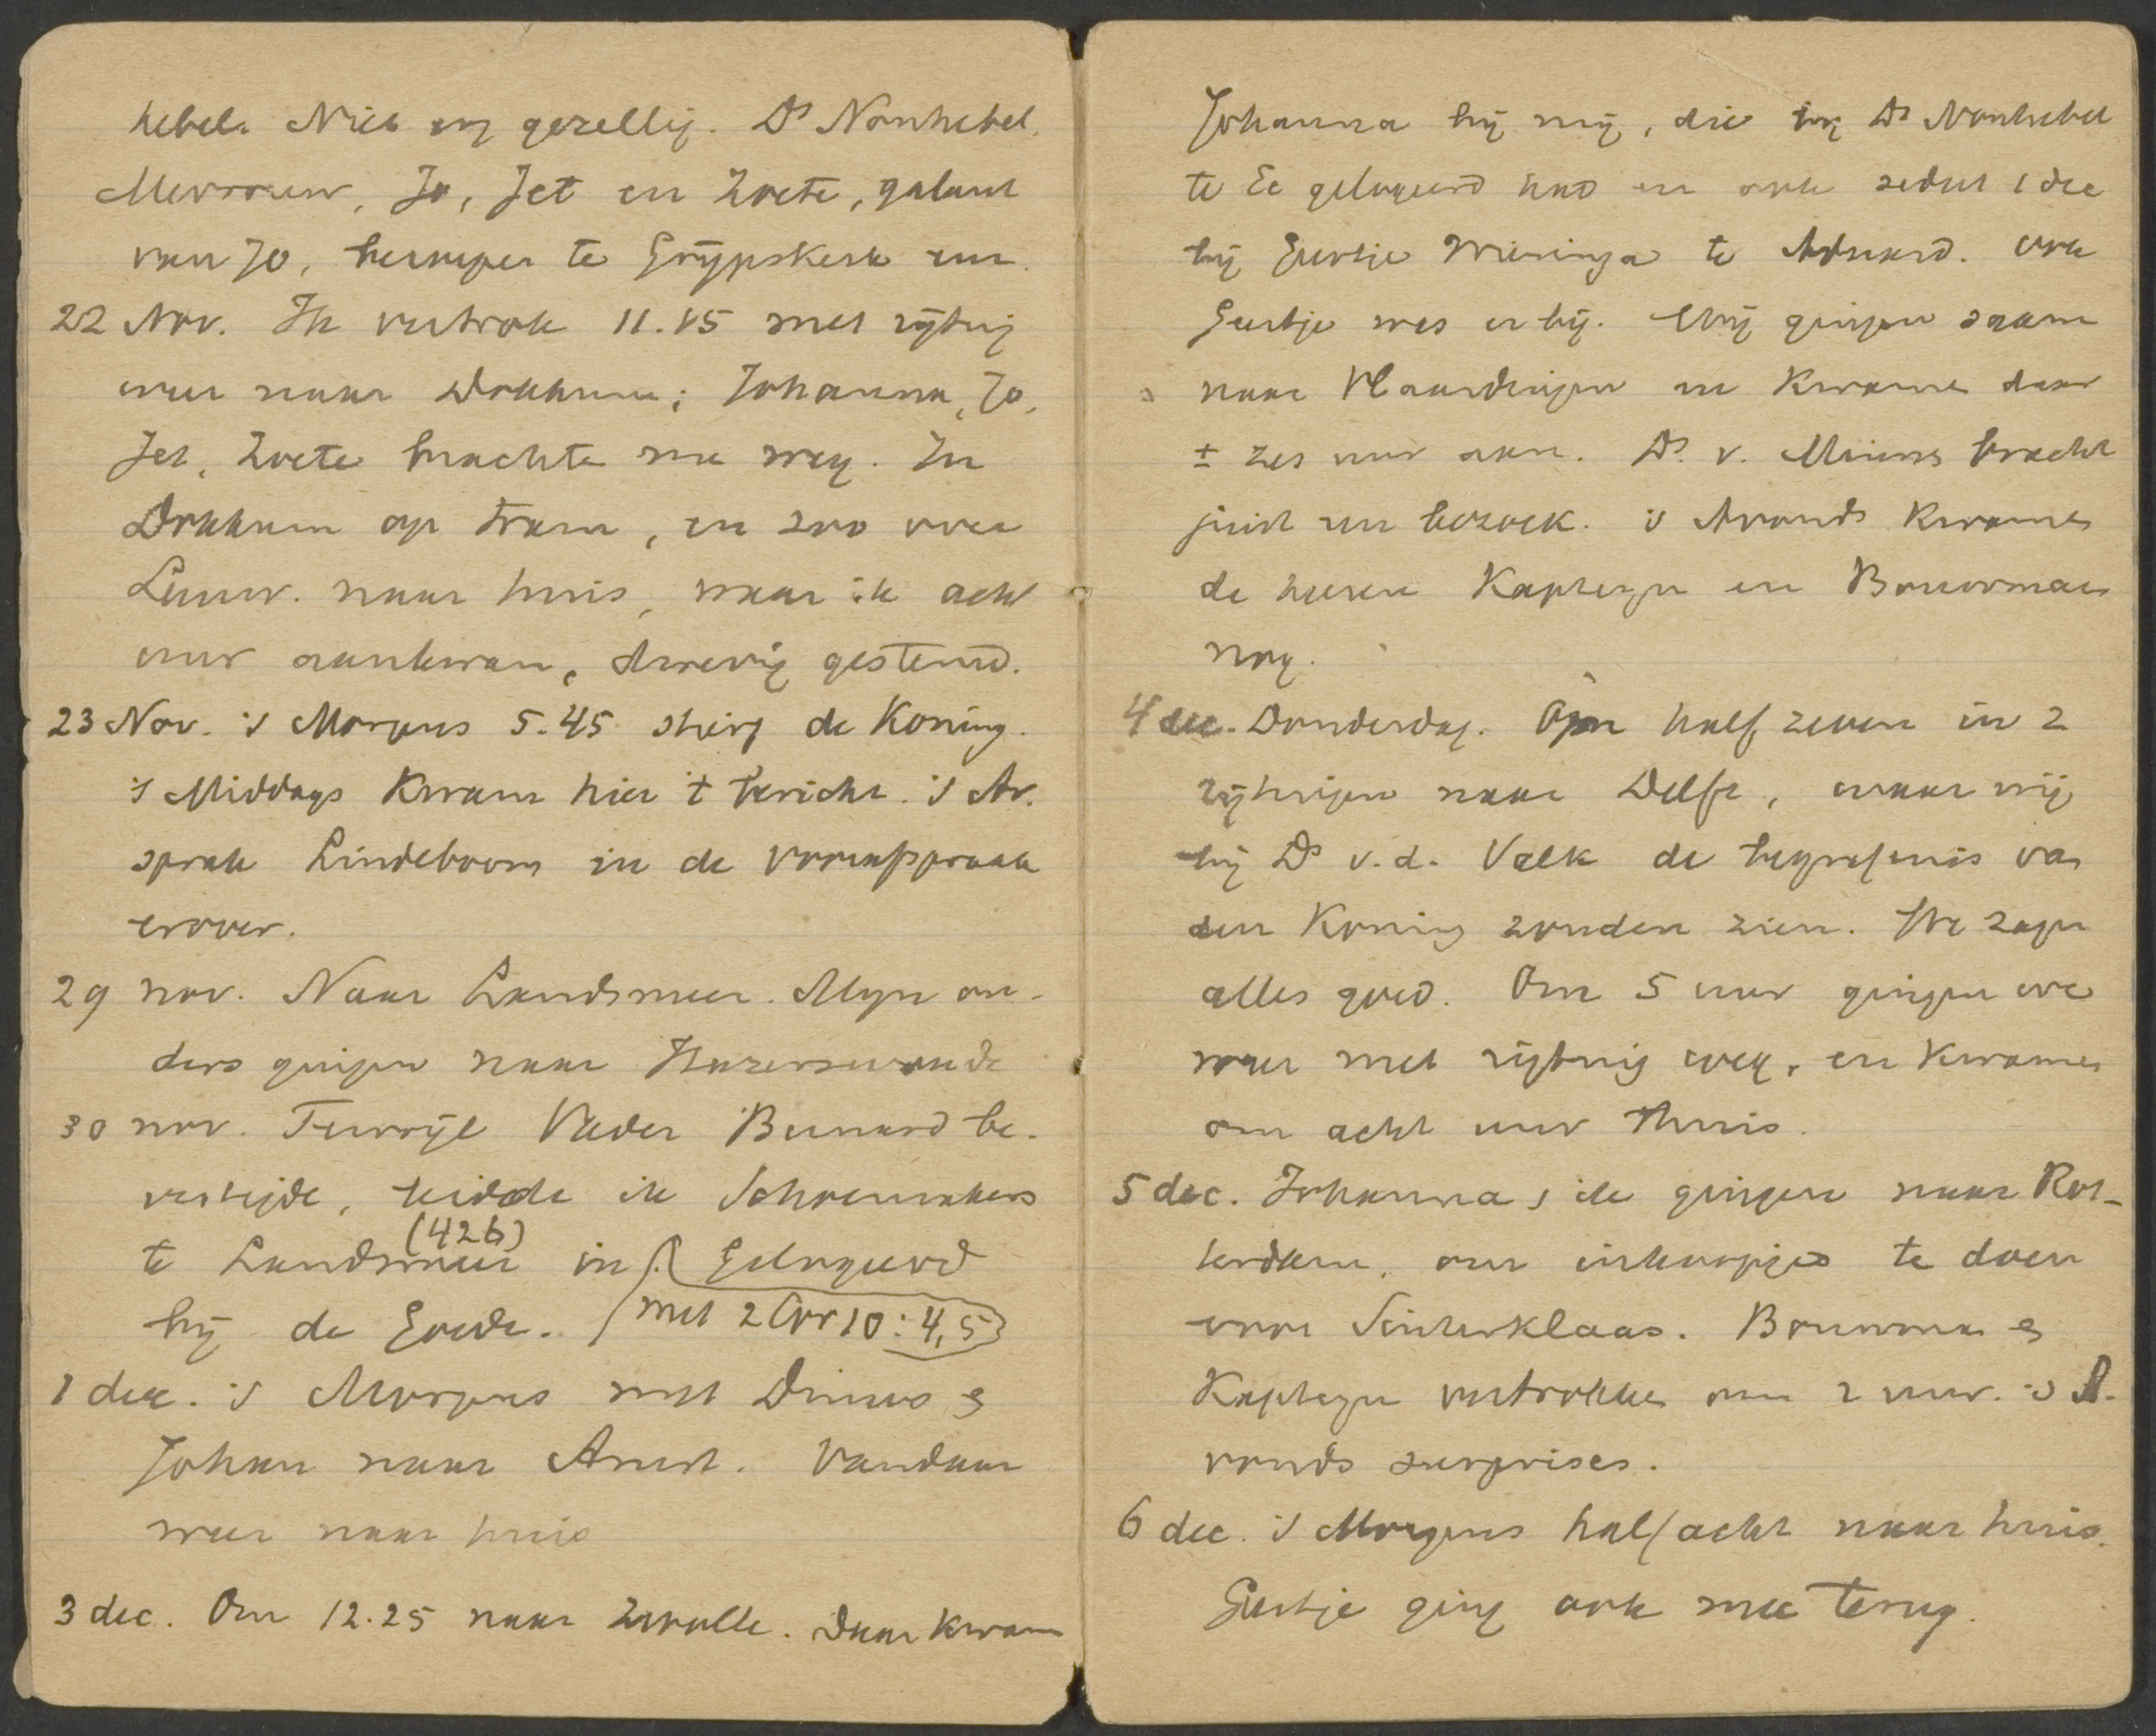 hebel. Niet erg gezellig. Ds Nonhebel,
Mevrouw, Jo, Jet en Zoete, galant
van Jo,            te Grijpskerk
22 Nov. Ik vertrok 11.15 met rijtuig
weer naar Dokkum; Johanna, Jo,
Jet, Zoete brachte me weg. In
Dokkum op tram, en zoo over
Leeuw. naar huis, waar ik acht
uur aankwam, droevig gestemd.
23 Nov. 's Morgens 5.45 stierf de Koning.
's Middags kwam hier 't bericht. 's Av.
sprak Lindeboom in de voorafspraak
erover.
29 nov. Naar Landsmeer. Mijn ou-
ders gingen naar Hazerswoude
30 nov. Terwijl Vader Bennard be-
vestigde, leidde ik Schoenmakers
te Landsmeer in. Gelogeerd
(426)
bij de Goede. met 2 Cor 10:4,5
1 dec. 's Morgens met Dimus &
Johan naar Amst. Vandaar
weer naar huis
3 dec. Om 12.25 naar Zwolle. Daar kwam
Johanna bij mij, die bij Ds Nonhebel
te Ee gelogeerd had en ook sedert 1 dec
bij Geertje Wieringa te Aduard. Ook
Geertje was er bij. Wij gingen saam
naar Vlaardingen en kwamen daar
± zes uur aan. Ds. v. Minnen bracht
juist een bezoek. 's Avonds kwamen
de heeren Kapteyn en Bouwman
nog.
4 dec. Donderdag. Om half zeven in 2
rijtuigen naar Delft, waar wij
bij Ds v.d. Valk de begrafenis van
den Koning zouden zien. We zagen
alles goed. Om 5 uur gingen we
weer met rijtuig weg, en kwamen
om acht uur thuis.
5 dec. Johanna & ik gingen naar Rot-
terdam, om inkoopjes te doen
voor Sinterklaas. Bouwman &
Kapteyn vertrokken om 2 uur. 's A-
vonds surprises.
6 dec. 's Morgens half acht naar huis.
Geertje ging ook mee terug.